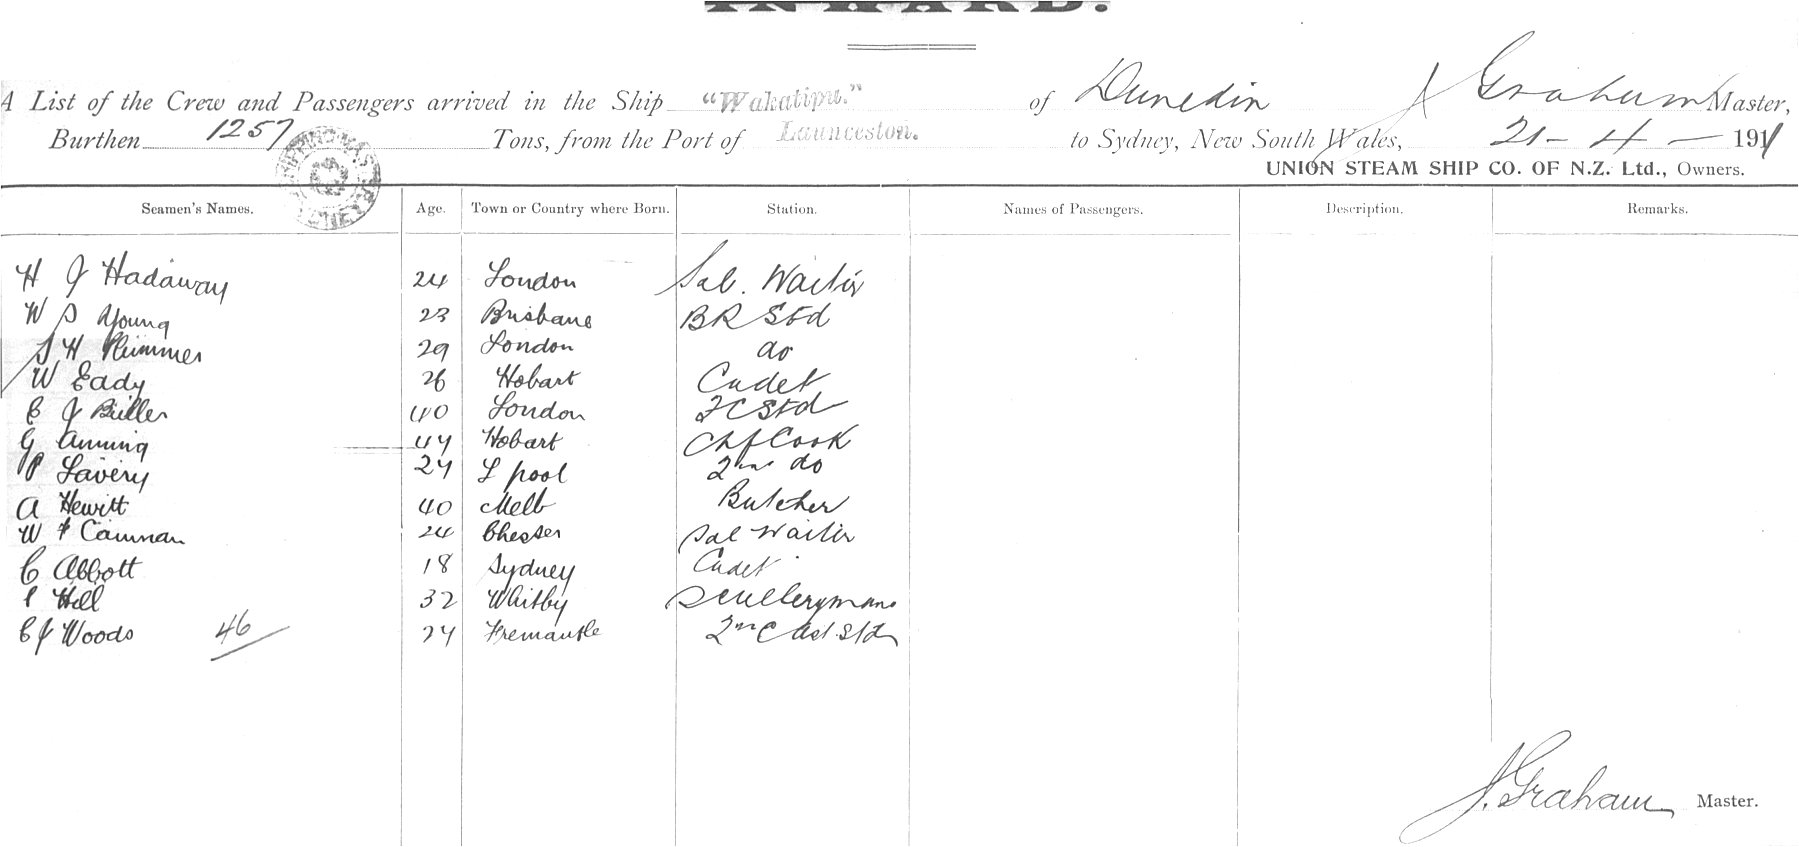 INWARD.
A List of the Crew and Passengers arrived in the Ship "Wakatipu." of Dunedin J Graham Master,
Burthen 1257 Tons, from the Port of Launceston. to Sydney, New South Wales, 21-4-1911
UNION STEAM SHIP CO. OF N.Z. Ltd., Owners.
Seamen's Names. Age. Town or Country where Born. Station. Names of Passengers. Description. Remarks.
H J Hadaway 24 London Sal. Waiter
W S Young 23 Brisbane BR Std
S H Plummer 29 London do
W Eady 26 Hobart Cadet
E J Buller 40 London 2C Std
G Anning 44 Hobart Chf Cook
P Lavery 24 L pool 2nd do
A Hewitt 40 Melb Butcher
W F Cainnan 24 Chester Sal Waiter
C Abbott 18 Sydney Cadet
Hill 32 Whitby Scullerymans
C J Woods 46 24 Fremantle 2nd C Ast. Std
J. Graham Master.